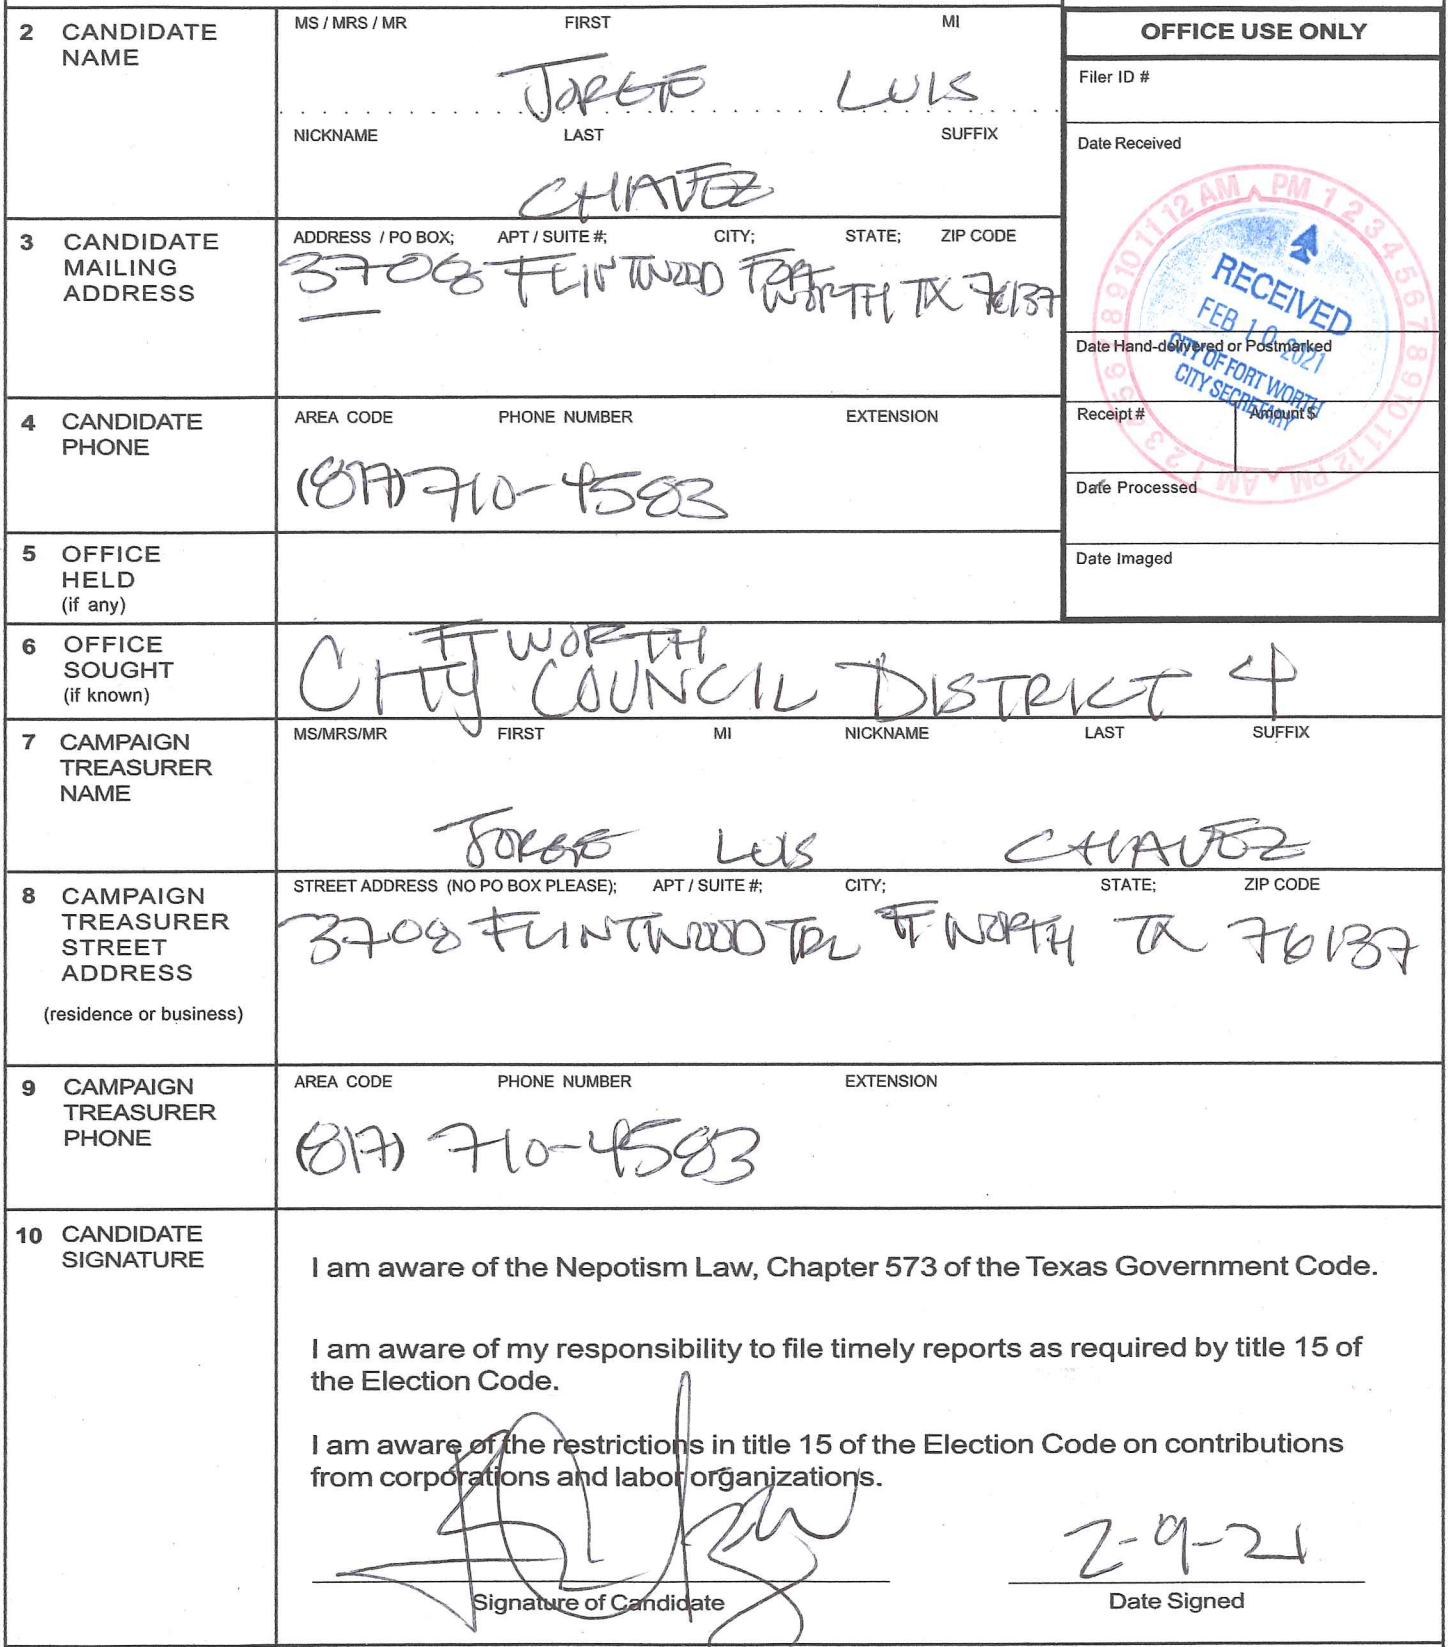 2 CANDIDATE NAME
MS / MRS / MR FIRST MI
JORGE LUIS
NICKNAME LAST SUFFIX
CHAVEZ
OFFICE USE ONLY
Filer ID #
Date Received
Date Hand-delivered or Postmarked
Receipt # Amount $
Date Processed
Date Imaged
12 AM PM 1 2 3 4 5 6 7 8 9 10 11 12 PM AM 1 2 3 4 5 6 7 8 9 10 11
RECEIVED
FEB 10 2021
CITY OF FORT WORTH
CITY SECRETARY
3 CANDIDATE MAILING ADDRESS
ADDRESS / PO BOX; APT / SUITE #; CITY; STATE; ZIP CODE
3708 FLINTWOOD FORT WORTH TX 76137
4 CANDIDATE PHONE
AREA CODE PHONE NUMBER EXTENSION
(817) 710-4583
5 OFFICE HELD (if any)
6 OFFICE SOUGHT (if known)
FT WORTH
CITY COUNCIL DISTRICT 4
7 CAMPAIGN TREASURER NAME
MS/MRS/MR FIRST MI NICKNAME LAST SUFFIX
JORGE LUIS CHAVEZ
8 CAMPAIGN TREASURER STREET ADDRESS
(residence or business)
STREET ADDRESS (NO PO BOX PLEASE); APT / SUITE #; CITY; STATE; ZIP CODE
3708 FLINTWOOD TRL FT WORTH TX 76137
9 CAMPAIGN TREASURER PHONE
AREA CODE PHONE NUMBER EXTENSION
(817) 710-4583
10 CANDIDATE SIGNATURE
I am aware of the Nepotism Law, Chapter 573 of the Texas Government Code.
I am aware of my responsibility to file timely reports as required by title 15 of
the Election Code.
I am aware of the restrictions in title 15 of the Election Code on contributions
from corporations and labor organizations.
2-9-21
Signature of Candidate Date Signed